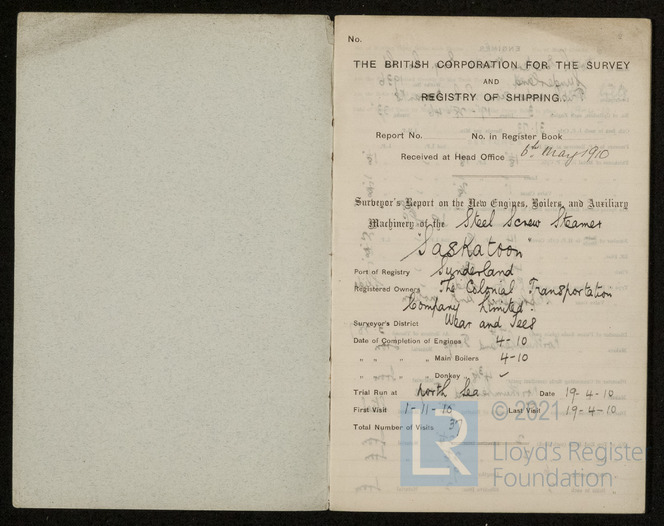 No.
THE BRITISH CORPORATION FOR THE SURVEY
AND
REGISTRY OF SHIPPING.
Report No. No. in Register Book
Received at Head Office 6th May 1910
Surveyor's Report on the New Engines, Boilers, and Auxiliary
Machinery of the Steel Screw Steamer
"Saskatoon"
Port of Registry Sunderland
Registered Owners The Colonial Transportation
Company Limited.
Surveyor's District Wear and Tees
Date of Completion of Engines 4-10
" " " " Main Boilers 4-10
" " " Donkey " ✓
Trial Run at North Sea Date 19-4-10
First Visit 1-11-10 Last Visit 19-4-10
Total Number of Visits 37
© 2021
LR
Lloyd's Register
Foundation